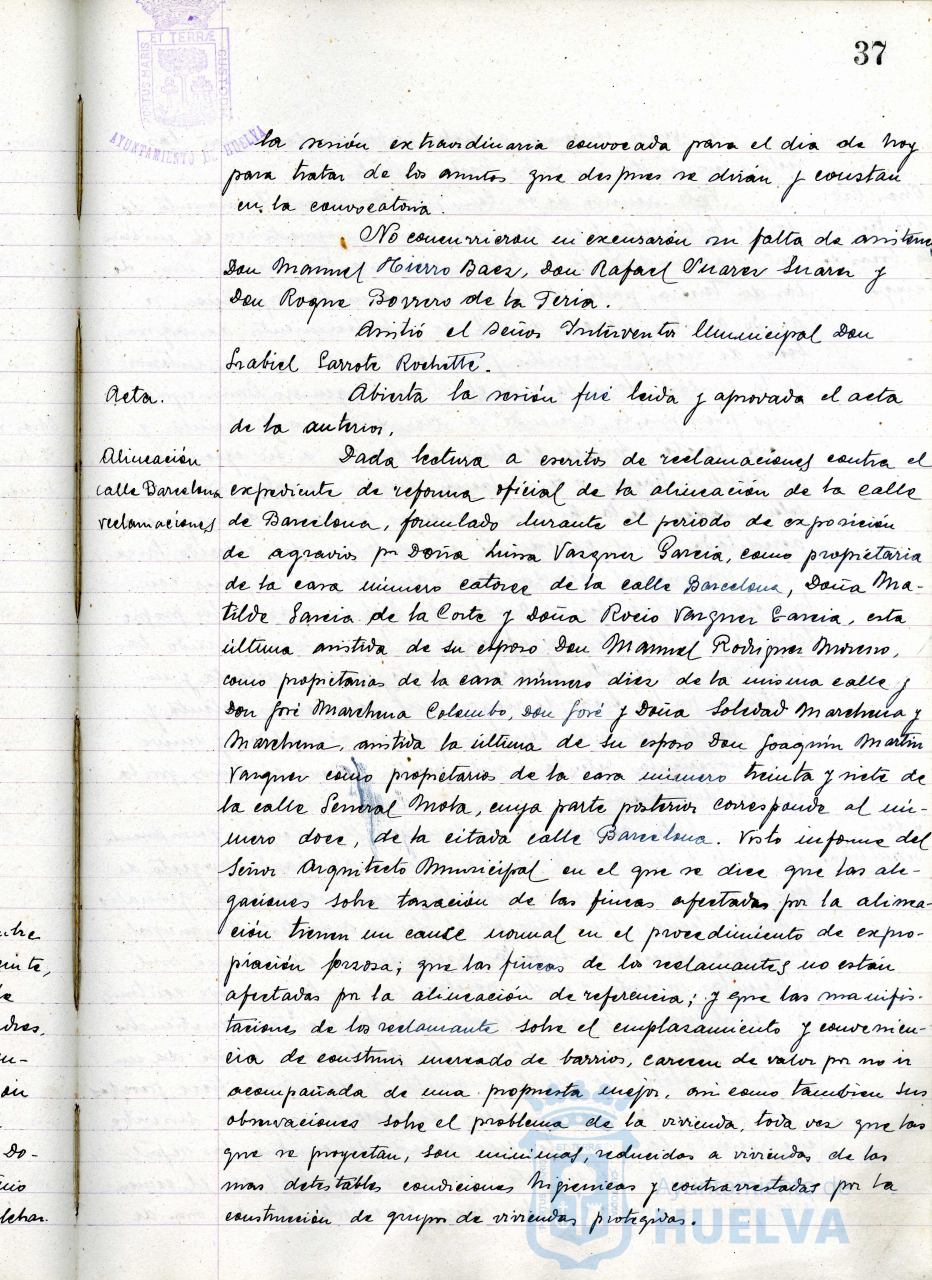 37
PORTUS MARIS ET TERRÆ CUSTODIA
AYUNTAMIENTO DE HUELVA
la sesión extraordinaria convocada para el dia de hoy
para tratar de los asuntos que despues se dirán y constan
en la convocatoria.
No concurrieron ni excusarón su falta de asistenc
Don Manuel Hierro Baez, Don Rafael Suarez Suarez y
Don Roque Borrero de la Feria.
Asistió el Señor Interventor Municipal Don
Isabiel Garrote Rochette.
Acta.
Abierta la sesión fué leida y aprovada el acta
de la anterior.
Alineación
calle Barcelona
reclamaciones
Dada lectura a escritos de reclamaciones contra el
expediente de reforma oficial de la alineación de la calle
de Barcelona, formulado durante el periodo de exposición
de agravios pr Doña Luisa Vazquez Garcia, como propietaria
de la casa número catorce de la calle Barcelona, Doña Ma-
tilde Garcia de la Corte y Doña Rocio Vazquez Garcia, esta
última asistida de su esposo Don Manuel Rodriguez Moreno,
como propietarias de la casa número diez de la misma calle y
Don José Marchena Colombo, Don José y Doña Soledad Marchena y
Marchena, asistida la última de su esposo Don Joaquín Martin
Vazquez como propietarios de la casa número treinta y siete de
la calle General Mola, cuya parte posterior corresponde al nú-
mero doce, de la citada calle Barcelona. Visto informe del
Señor Arquitecto Municipal en el que se dice que las ale-
gaciones sobre tasación de las fincas afectadas por la alinea-
ción tienen un cause normal en el procedimiento de expro-
piación forzosa; que las fincas de los reclamantes no están
afectadas por la alineación de referencia; y que las manifis-
taciones de los reclamante sobre el emplazamiento y convenien-
cia de construir mercado de barrios, carecen de valor por no ir
acompañada de una propuesta mejor, asi como tambien sus
observaciones sobre el problema de la vivienda, toda vez que las
que se proyectan, son minimas, reducidas a viviendas de las
mas detestables condiciones higienicas y contrarrestadas por la
construcción de grupos de viviendas protegidas.
Ayuntamiento de
HUELVA